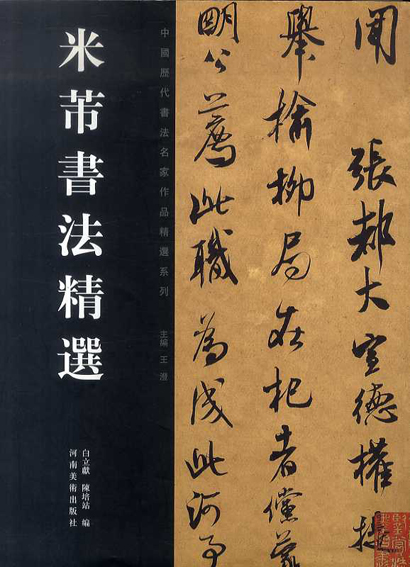 米芾書法精選
中國歷代書法名家作品精選系列 主編 王澄
白立獻 陳培站 編
河南美術出版社
聞張都大宣德權提
舉榆柳局在杞者儻蒙
明公薦此職為成此河事